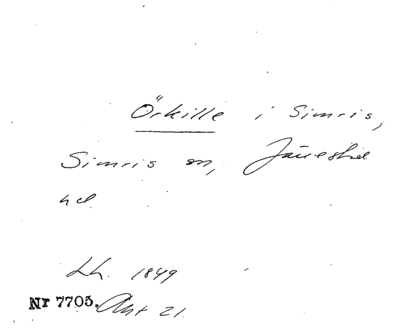 Örkille i Simris,
Simris sn, Järrestad
hd.
Lh. 1849
Nr 7705. Akt 21.